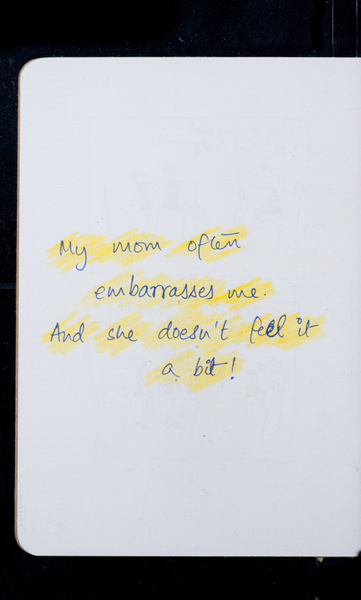 My mom often
embarrasses me.
And she doesn't feel it
a bit!